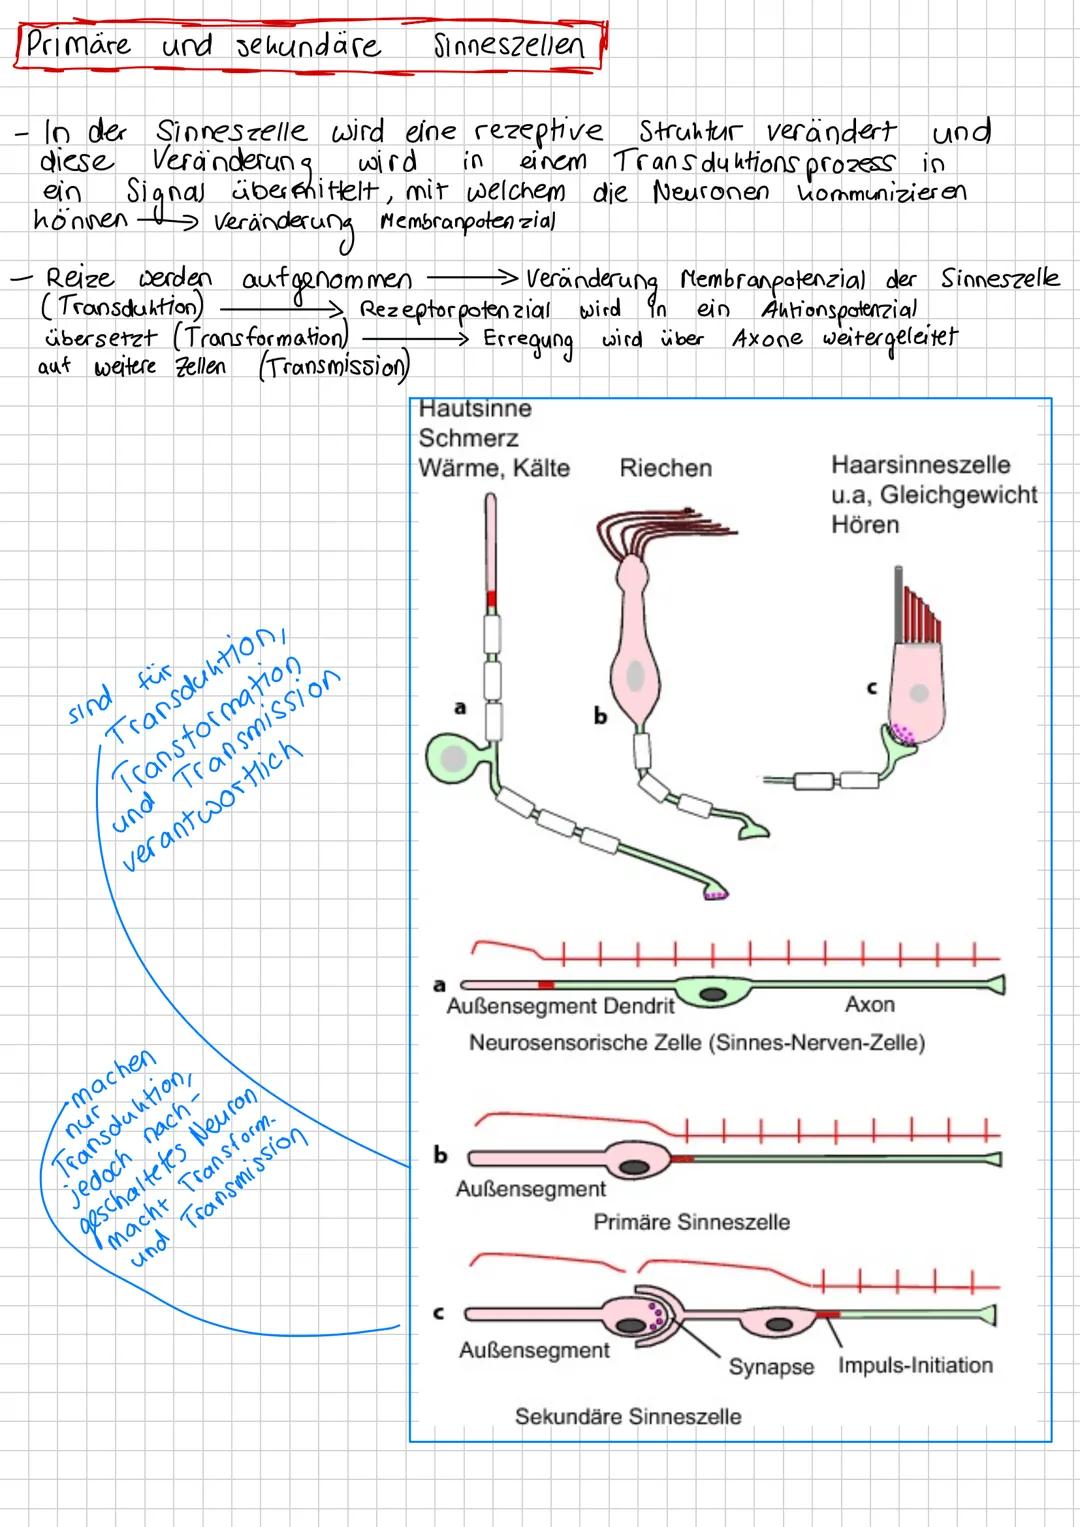 Primäre und sekundäre Sinneszellen
- In der Sinneszelle wird eine rezeptive Struktur verändert und
diese Veränderung wird in einem Transduktionsprozess in
ein Signal übermittelt, mit welchem die Neuronen kommunizieren
können → Veränderung Membranpotenzial
- Reize werden aufgenommen → Veränderung Membranpotenzial der Sinneszelle
(Transduktion) → Rezeptorpotenzial wird in ein Aktionspotenzial
übersetzt (Transformation) → Erregung wird über Axone weitergeleitet
auf weitere Zellen (Transmission)
Hautsinne
Schmerz
Wärme, Kälte
Riechen
Haarsinneszelle
u.a, Gleichgewicht
Hören
a
b
c
sind für
Transduktion,
Transformation
und Transmission
verantwortlich
a
Außensegment Dendrit
Axon
Neurosensorische Zelle (Sinnes-Nerven-Zelle)
machen
nur
Transduktion,
jedoch nach-
geschaltetes Neuron
macht Transform.
und Transmission
b
Außensegment
Primäre Sinneszelle
c
Außensegment
Synapse
Impuls-Initiation
Sekundäre Sinneszelle